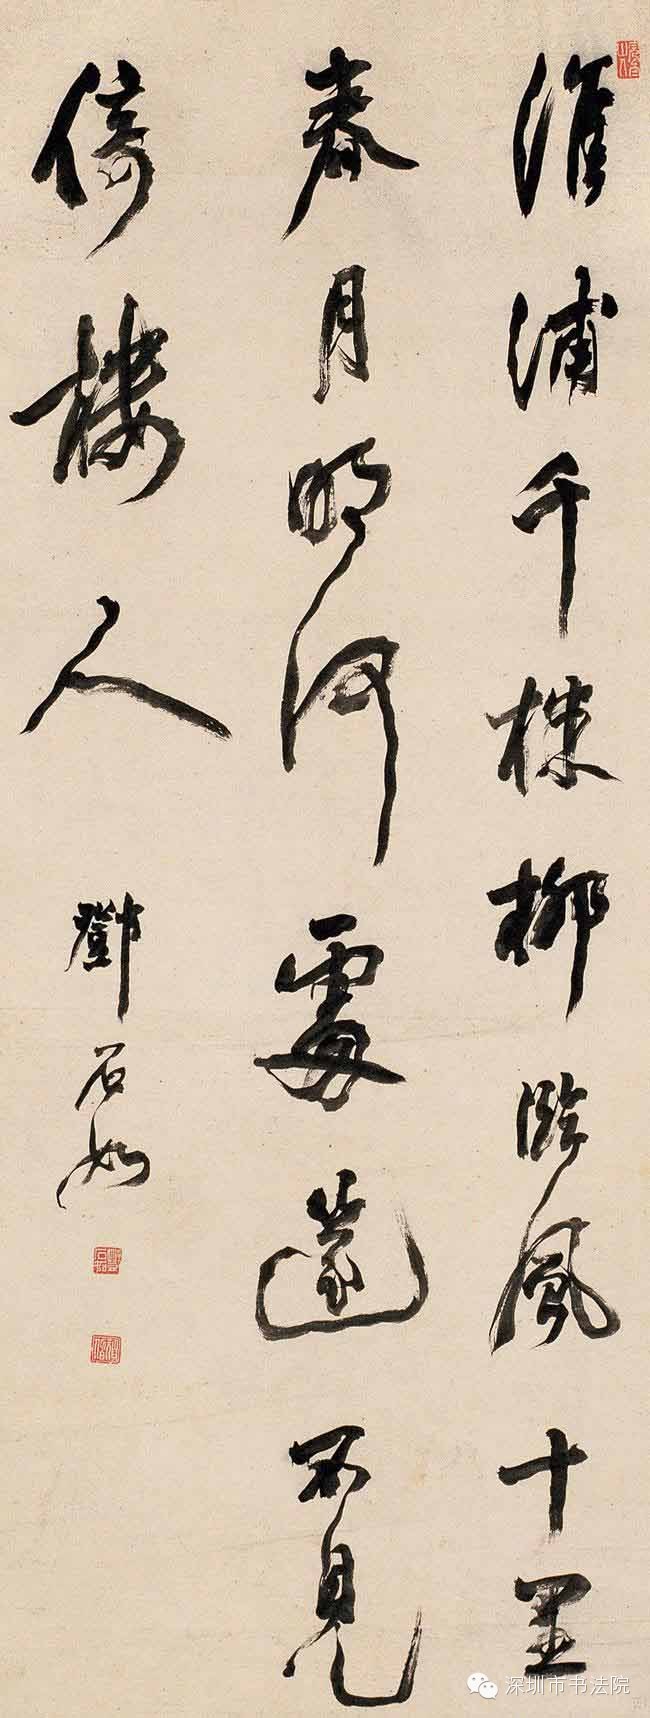 淮浦千株柳臨風十里
春月明何處篴不見
倚樓人
鄧石如
深圳市书法院